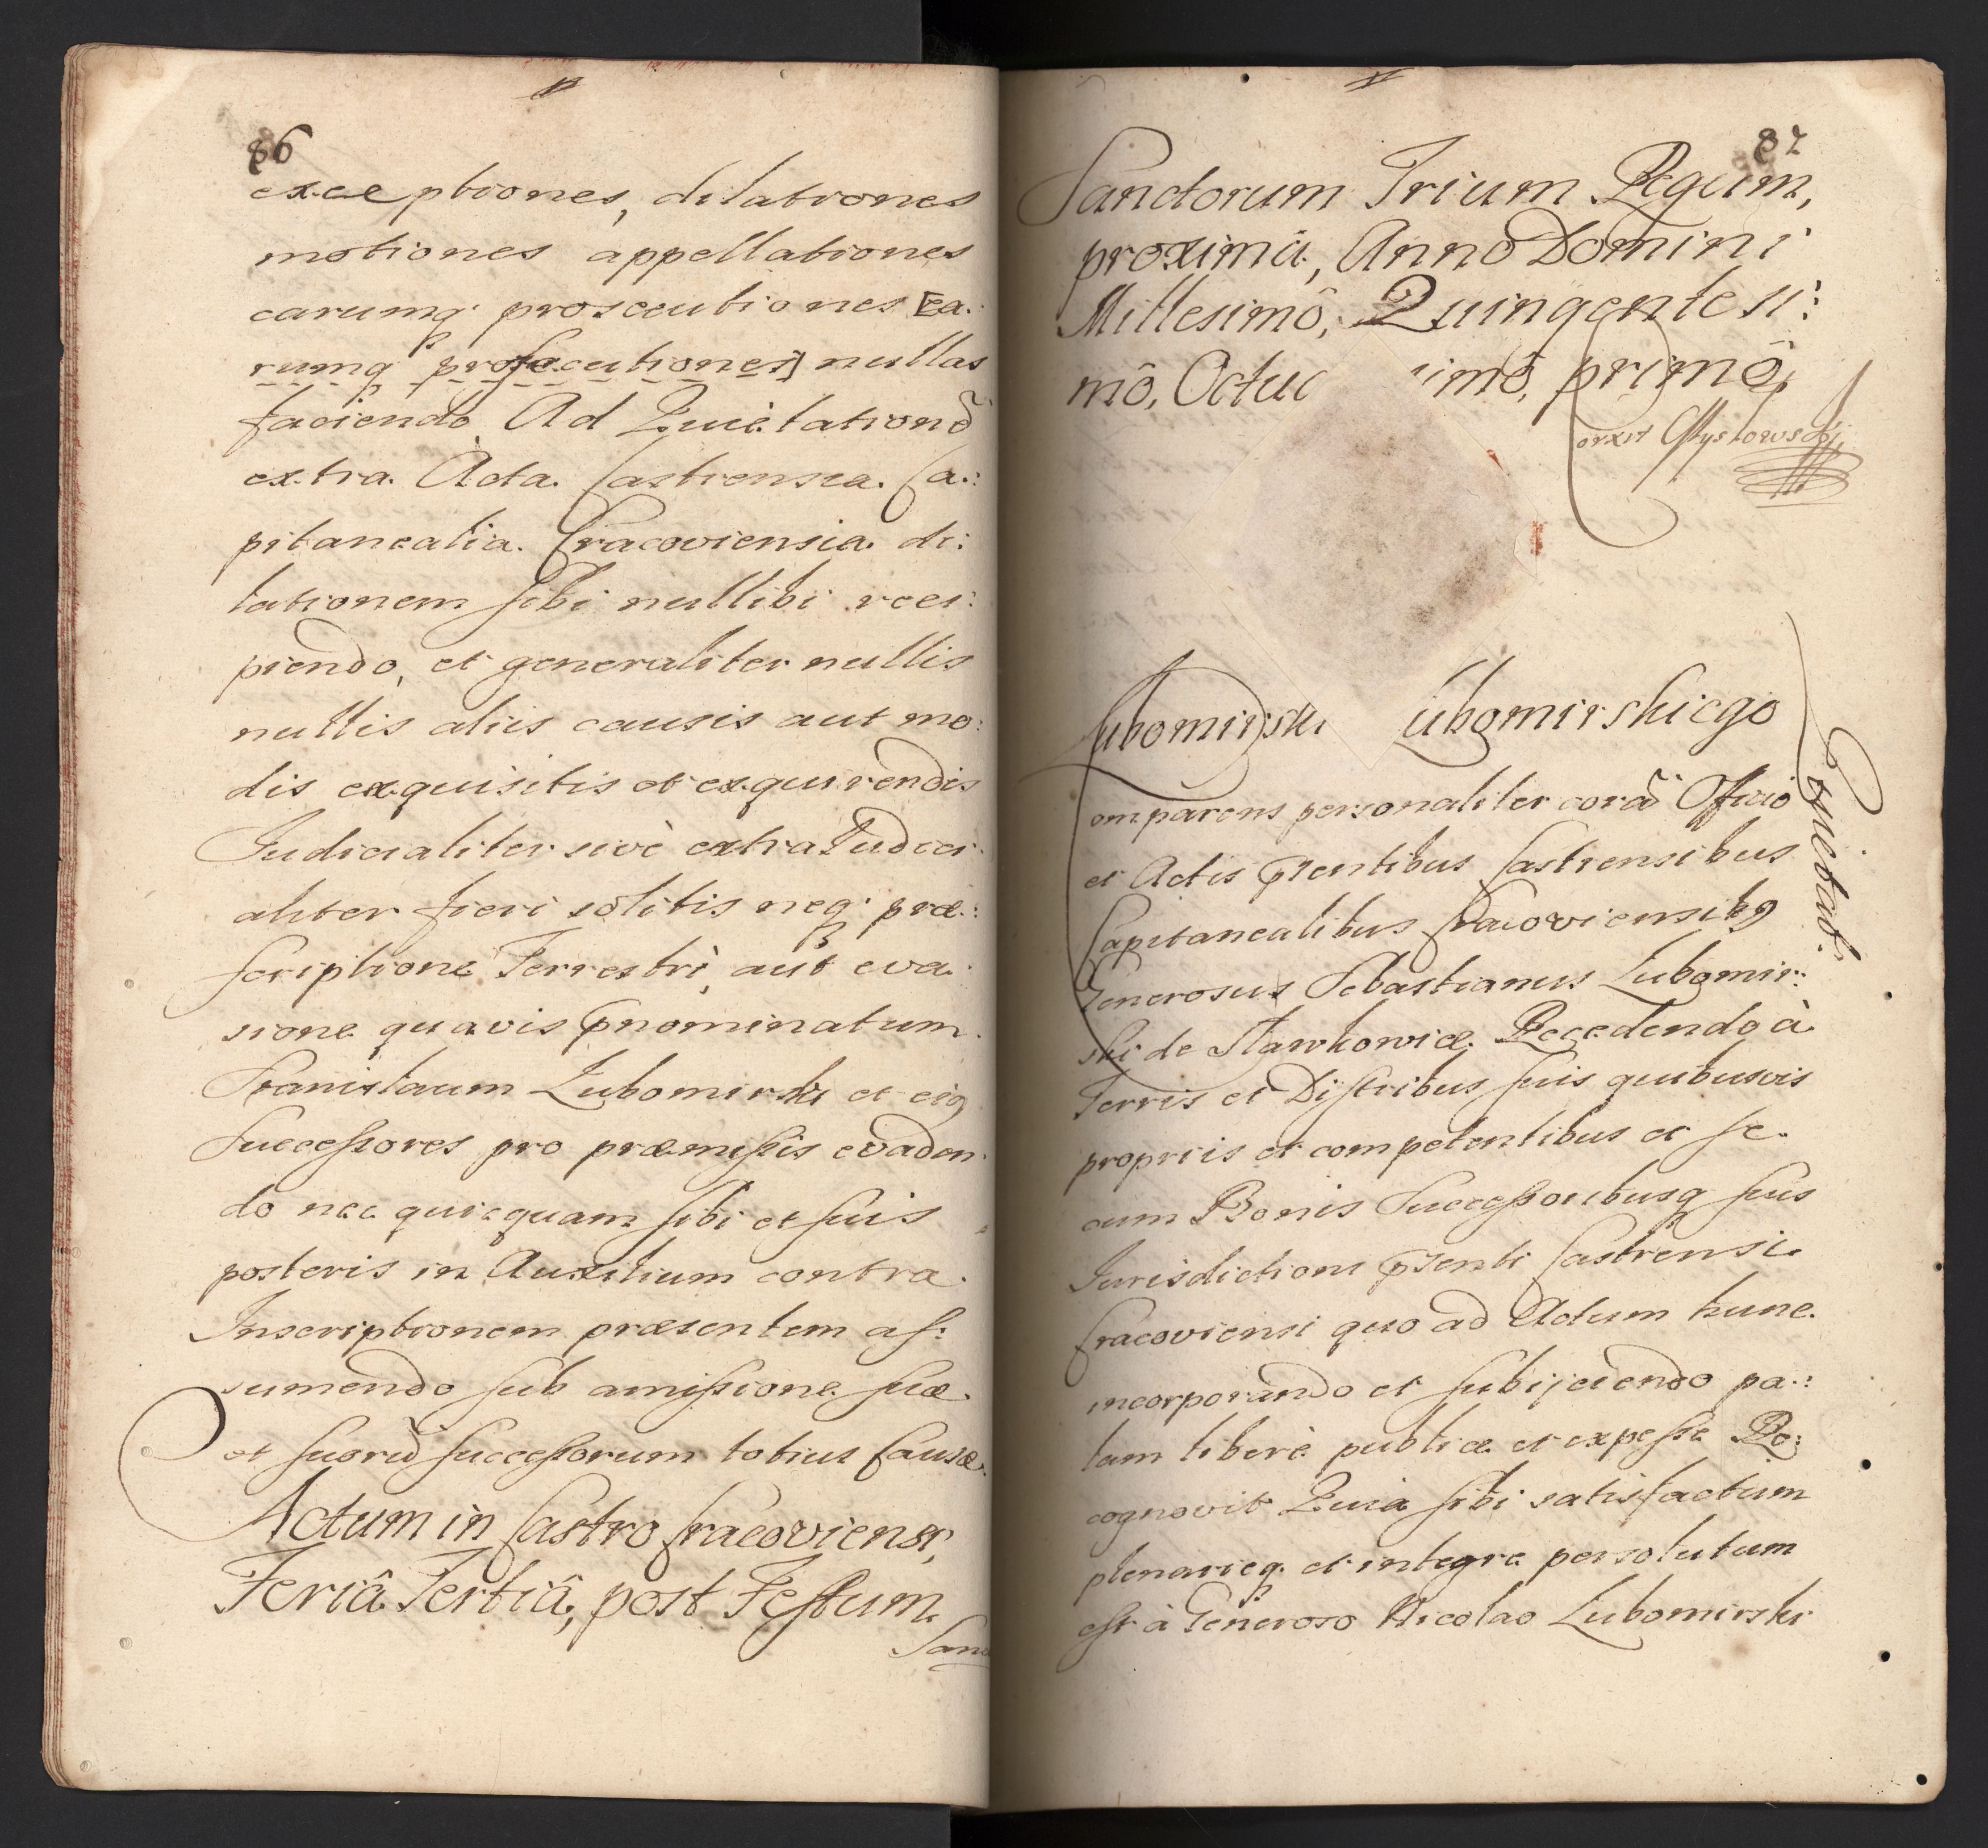 86
exceptiones, dilationes
motiones appellationes
earumq prosecutiones [ea:
rumq prosecutiones] nullas
faciendo Ad Quietationē
extra Acta Castrensia Ca:
pitanealia Cracoviensia di:
lationem sibi nullibi reci:
piendo, et generaliter nullis
nullis aliis causis aut mo:
dis exquisitis et exquirendis
Judicialiter sivè extra Judici
aliter fieri solitis neq: præ:
scriptione Terrestri, aut eva:
sione quavis pnominatum
Stanislaum Lubomirski et eig
Successores pro præmissis evaden:
do nec quicquam sibi et suis
posteris in Auxilium contra
Inscriptionem præsentem as:
sumendo sub amissione suæ
et suorū successorum totius Causæ
Actum in Castro Cracoviensi,
Feriâ Tertiâ, post Festum
Sanc
87
Sanctorum Trium Regum,
proximâ, Anno Domini
Millesimô, Quingentesi:
mô, Octu imô, primô,
Lubomirski Lubomirskiego
Comparens personaliter corā Officio
et Actis pnsentibus Castrensibus
Capitanealibus Cracoviensibg
Generosus Sebastianus Lubomir:
ski de Slawkowice Recedendo à
Terris et Districtibus suis quibusvis
propriis et competentibus et se
cum Bonis Successoribusq suis
Jurisdictioni pnsenti Castrensi
Cracoviensi quo ad Actum hunc
incorporando et subijciendo pa:
lam liberè publice et expresse Re:
cognovit Quia sibi satisfactum
plenarieq et integre persolutum
est à Generoso Nicolao Lubomirski
Quietat: